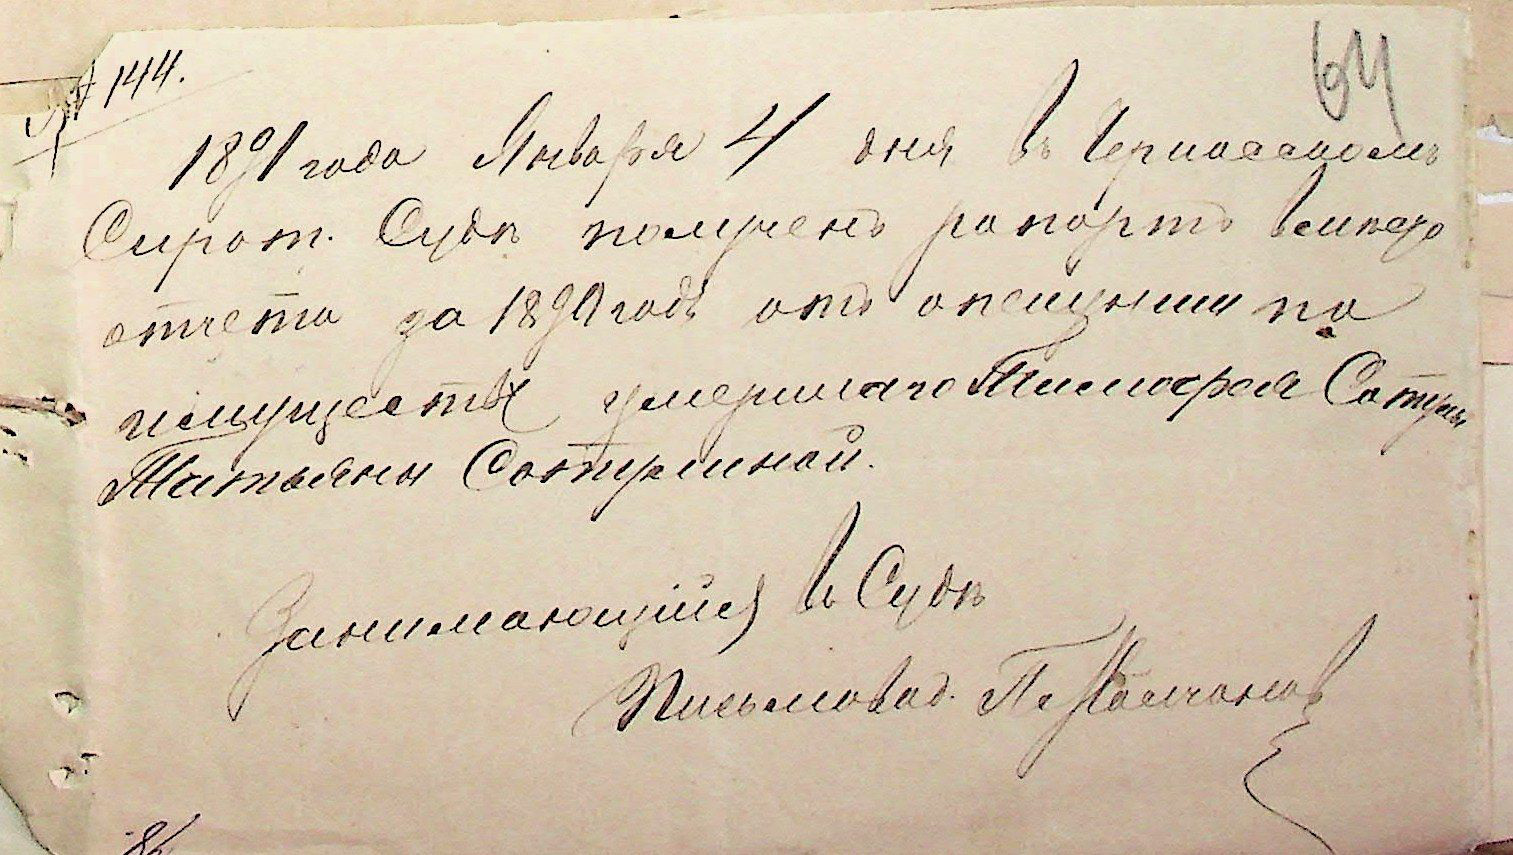 № 144.
64
1891 года Января 4 дня въ Черкасскомъ
Сирот. Судѣ полученъ рапортъ вмѣсто
отчета за 1890 годъ отъ опекунши по
имуществу умершаго Тимофея Сотул
Татьяны Сотулиной.
Занимающійся въ Судѣ
Письмовод. П. Молчановъ